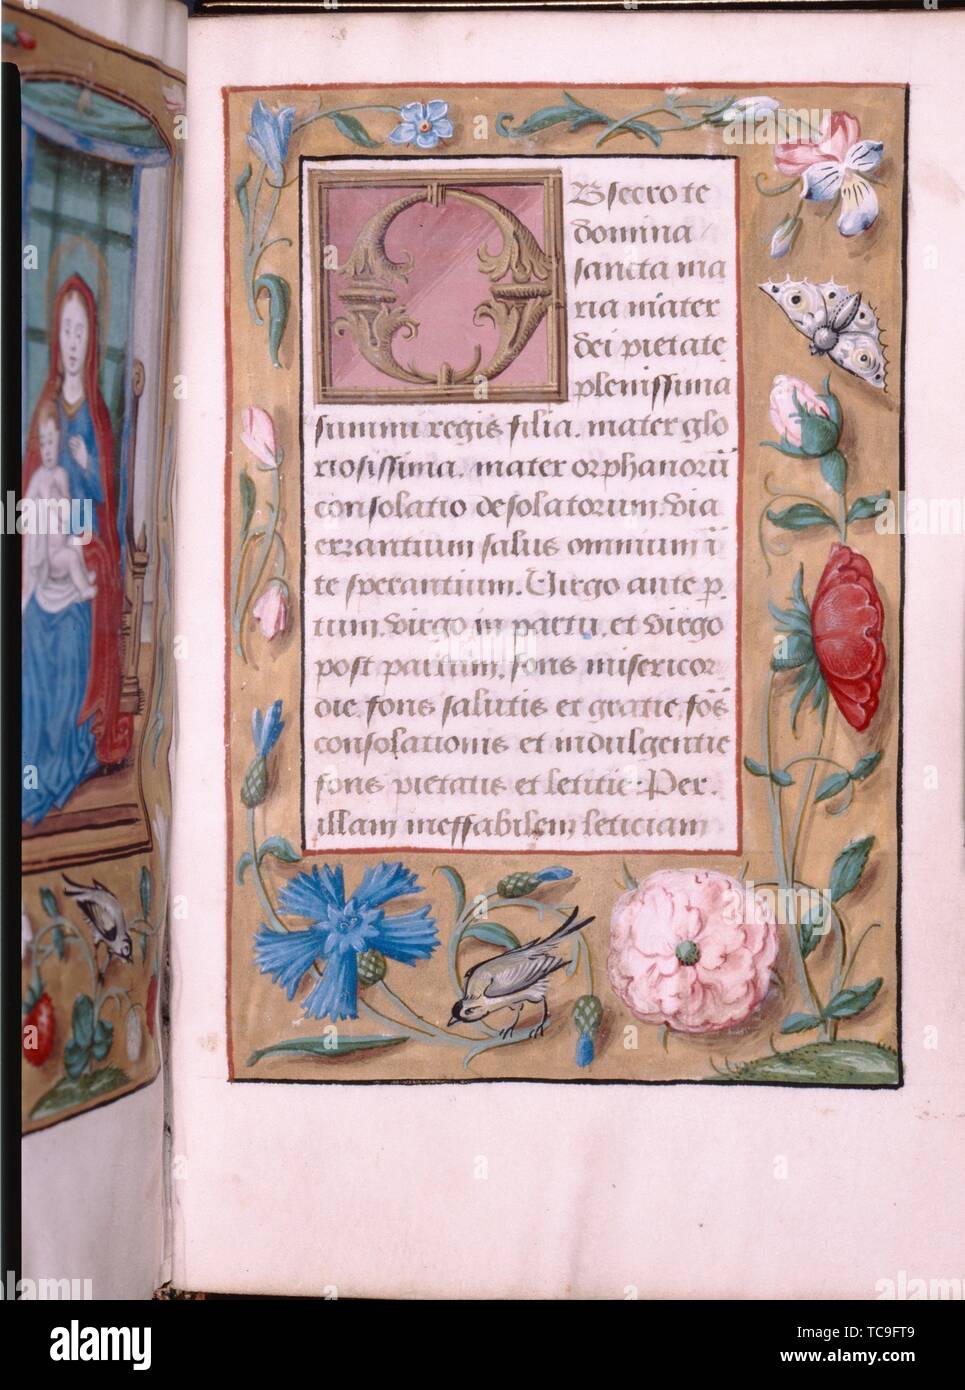 Obsecro te
domina
sancta ma
ria mater
dei pietate
plenissima
summi regis filia. mater glo
riosissima. mater orphanorū
consolatio desolatorum. via
errantium salus omnium ī
te sperantium. Virgo ante p̱
tum. virgo in partu. et virgo
post partum. fons misericor
die. fons salutis et gratie. fōs
consolationis et indulgentie
fons pietatis et letitie. Per.
illam ineffabilem leticiam
alamy
Image ID: TC9FT9
www.alamy.com